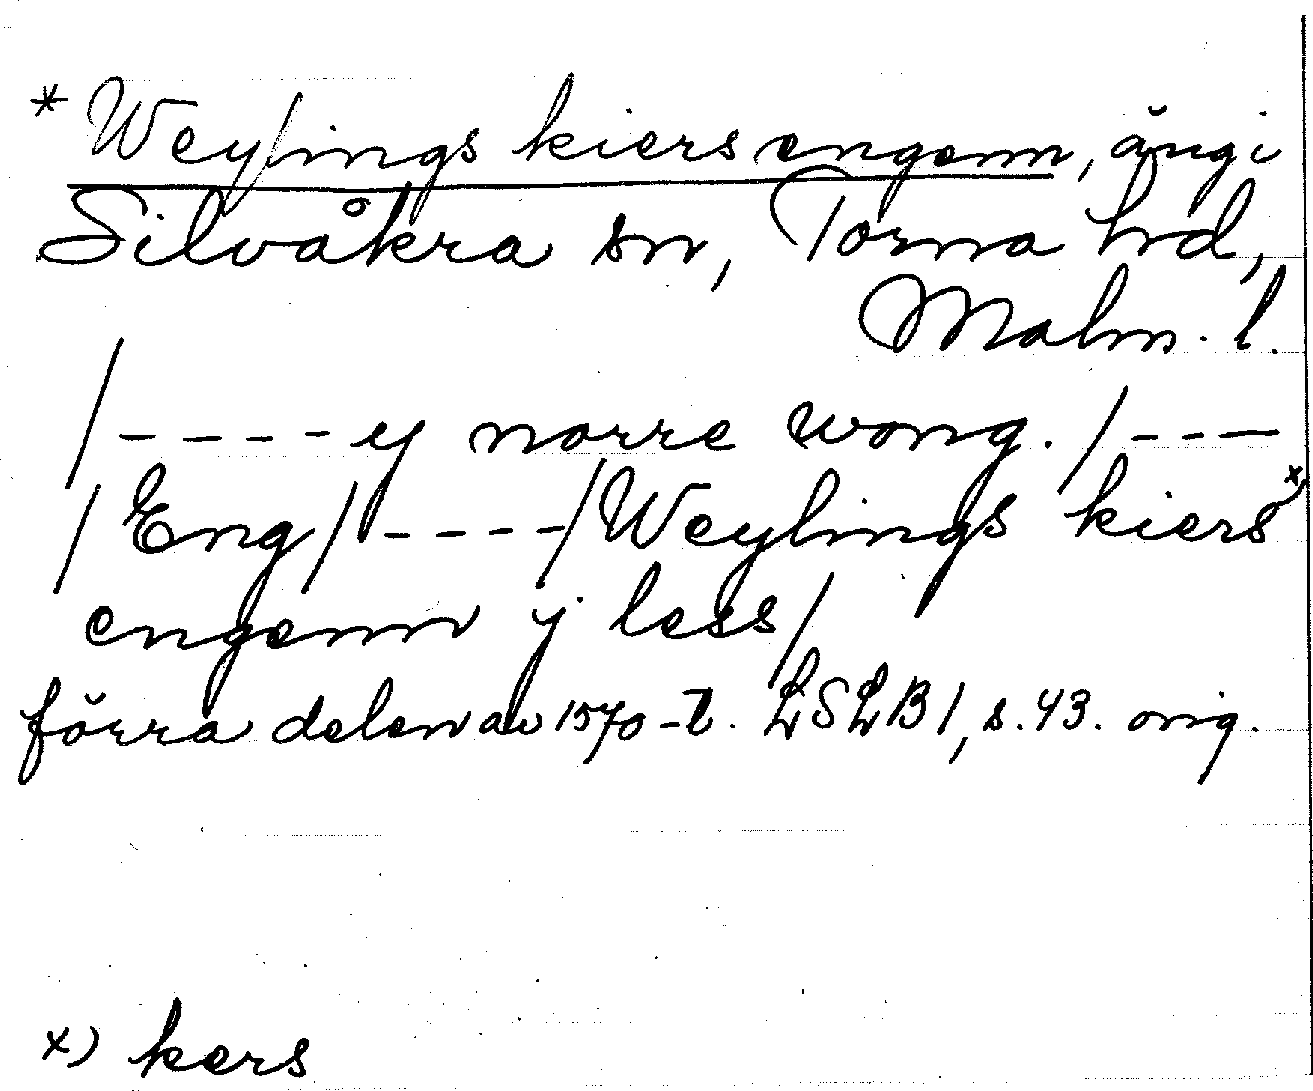 * Weylings kiers engenn, äng i
Silvåkra sn, Torna hd,
Malm. l.
/ - - - - y norre wong. / - - -
/ Eng / - - - - / Weylings kiers x)
engenn y less /
förra delen av 1570-t. LSLB 1, s. 43. orig.
x) kers